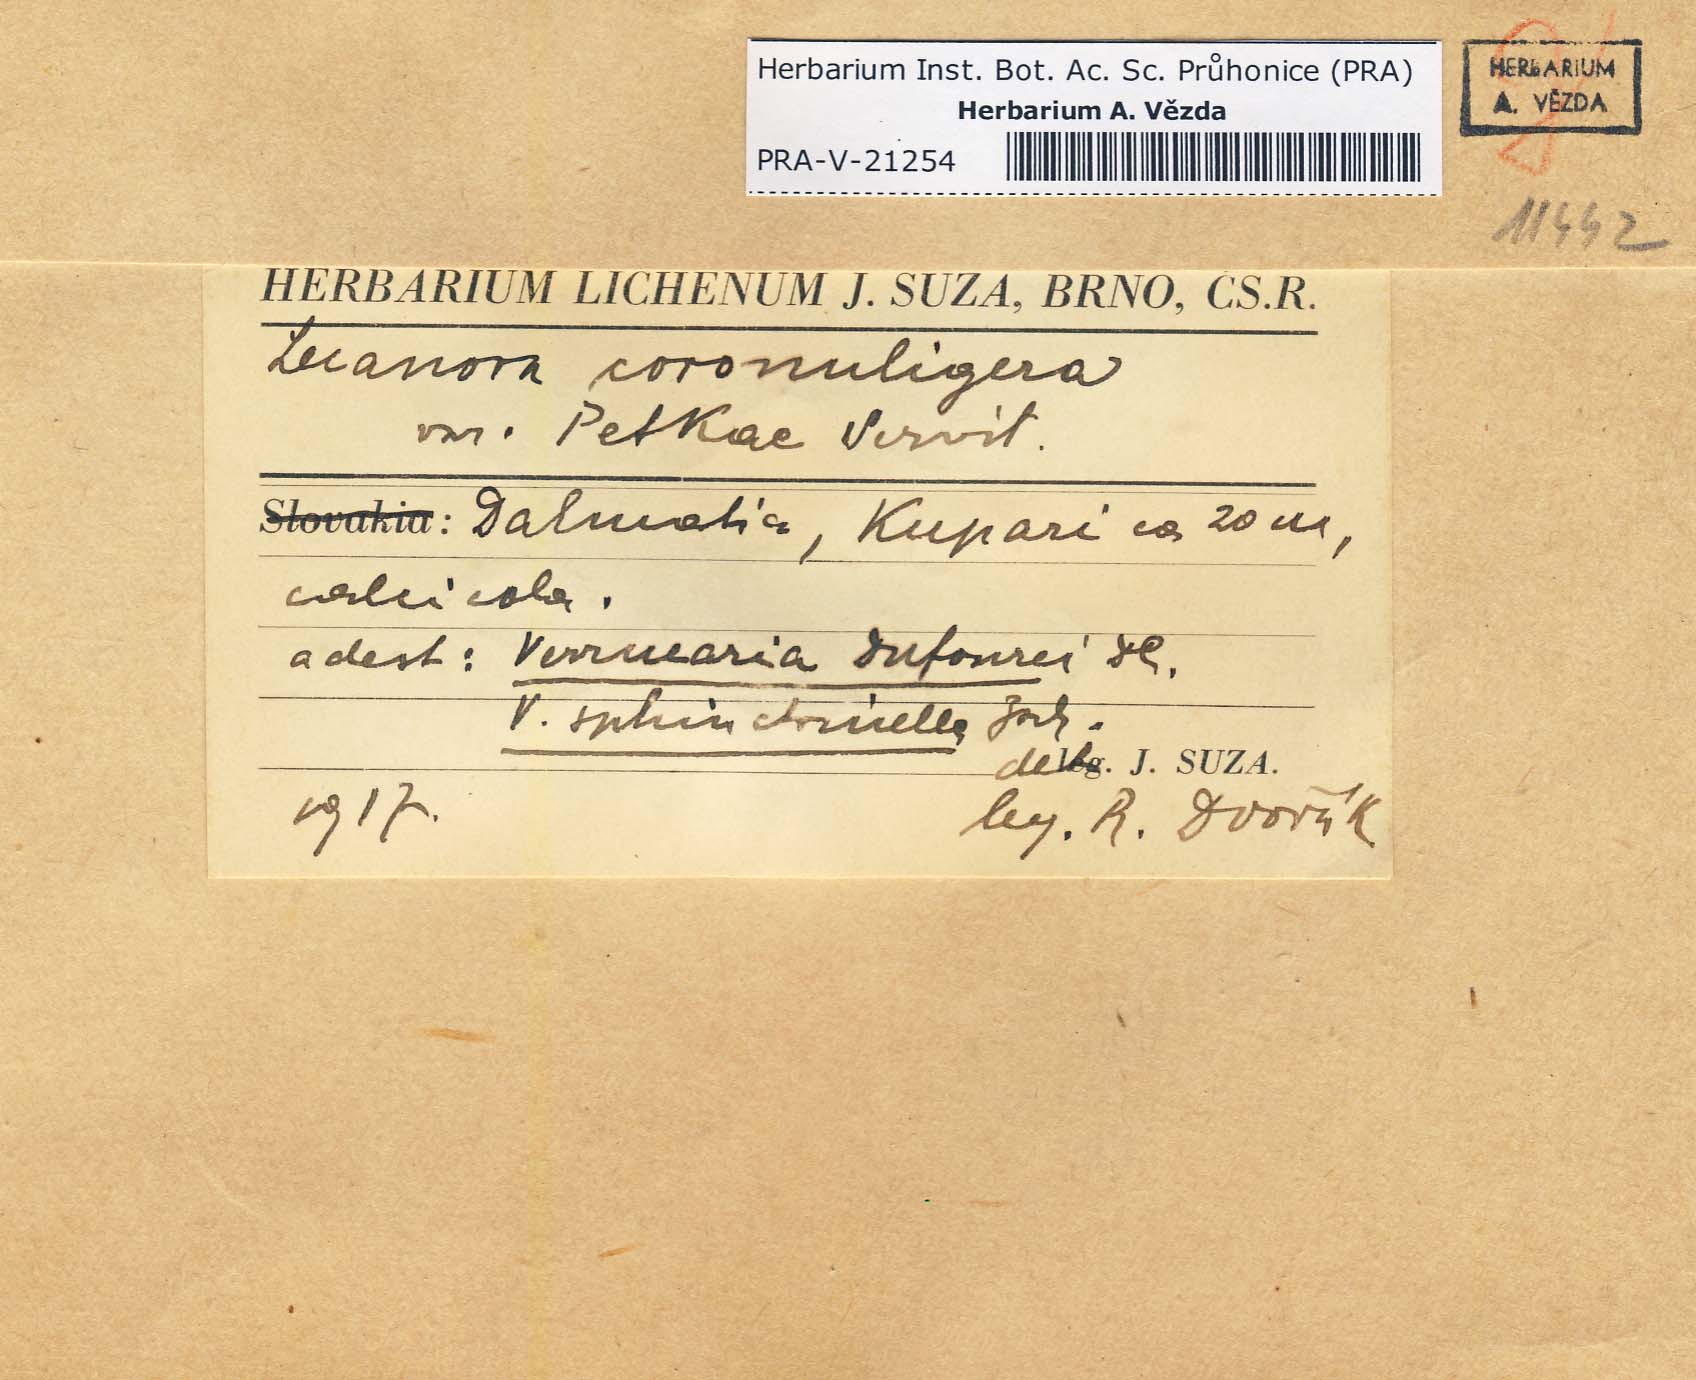 Herbarium Inst. Bot. Ac. Sc. Průhonice (PRA)
Herbarium A. Vězda
PRA-V-21254
HERBARIUM
A. VĚZDA
11442
HERBARIUM LICHENUM J. SUZA, BRNO, ČS.R.
Lecanora coronuligera
var. Petkae Servít.
Slovakia: Dalmatia, Kupari ca 20 m,
calcicola.
adest: Verrucaria Dufourei DC.
V. sphinctrinella Zsch.
det. J. SUZA.
1917.
leg. R. Dvořák